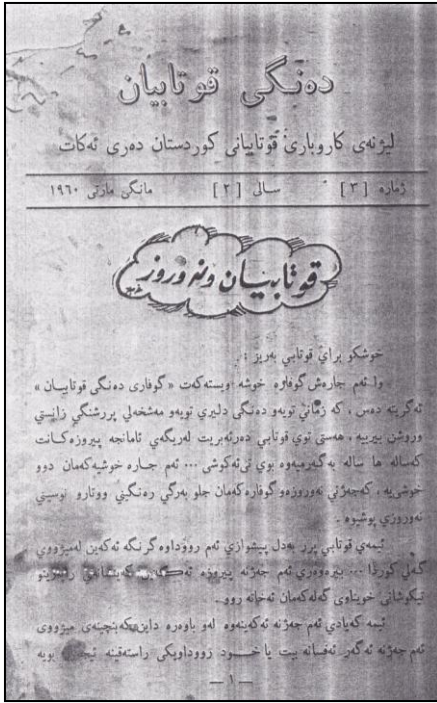 دەنگی قوتابیان
لیژنەی کاروباری قوتابیانی کوردستان دەری ئەکات
ژمارە [ ٣ ] سالی [ ٢ ] مانگی مارتی ١٩٦٠
قوتابیان ونەوروز
خوشکو برای قوتابی بەریز :
وا ئەم جارەش گوفارە خوشە ویستەکەت « گوفاری دەنگی قوتابیان »
ئەگریتە دەس ، کە زمانی تویەو دەنگی دلیری تویەو مەشخەلی پررشنگی زانستی
وروشن بیرییە ، هەستی توی قوتابی دەرئەبریت لەریگەی ئامانجە پیروزەکانت
کەسالە ها سالە بەگەرمیەوە بوی تی‌ئەکوشی ... ئەم جارە خوشیەکەمان دوو
خوشی‌یە ، کەجەژنی نەوروزەو گوفارەکەمان جلو بەرگی رەنگینی ووتارو نوسینی
نەوروزی پوشیوە .
ئیمەی قوتابی پرر بەدل پیشوازی ئەم رووداوە گرنگە ئەکەین لەمیژووی
گەلی کوردا ... بیرەوەری ئەم جەژنە پیروزە
تیکوشانی خویناوی گەلەکەمان ئەخاتە روو .
ئیمە کەیادی ئەم جەژنە ئەکەینەوە لەو باوەرە داین کەبنچینەی میژووی
ئەم جەژنە ئەگەر ئەفسانە بیت یا خود رووداویکی راستەقینە بویە
— ١ —